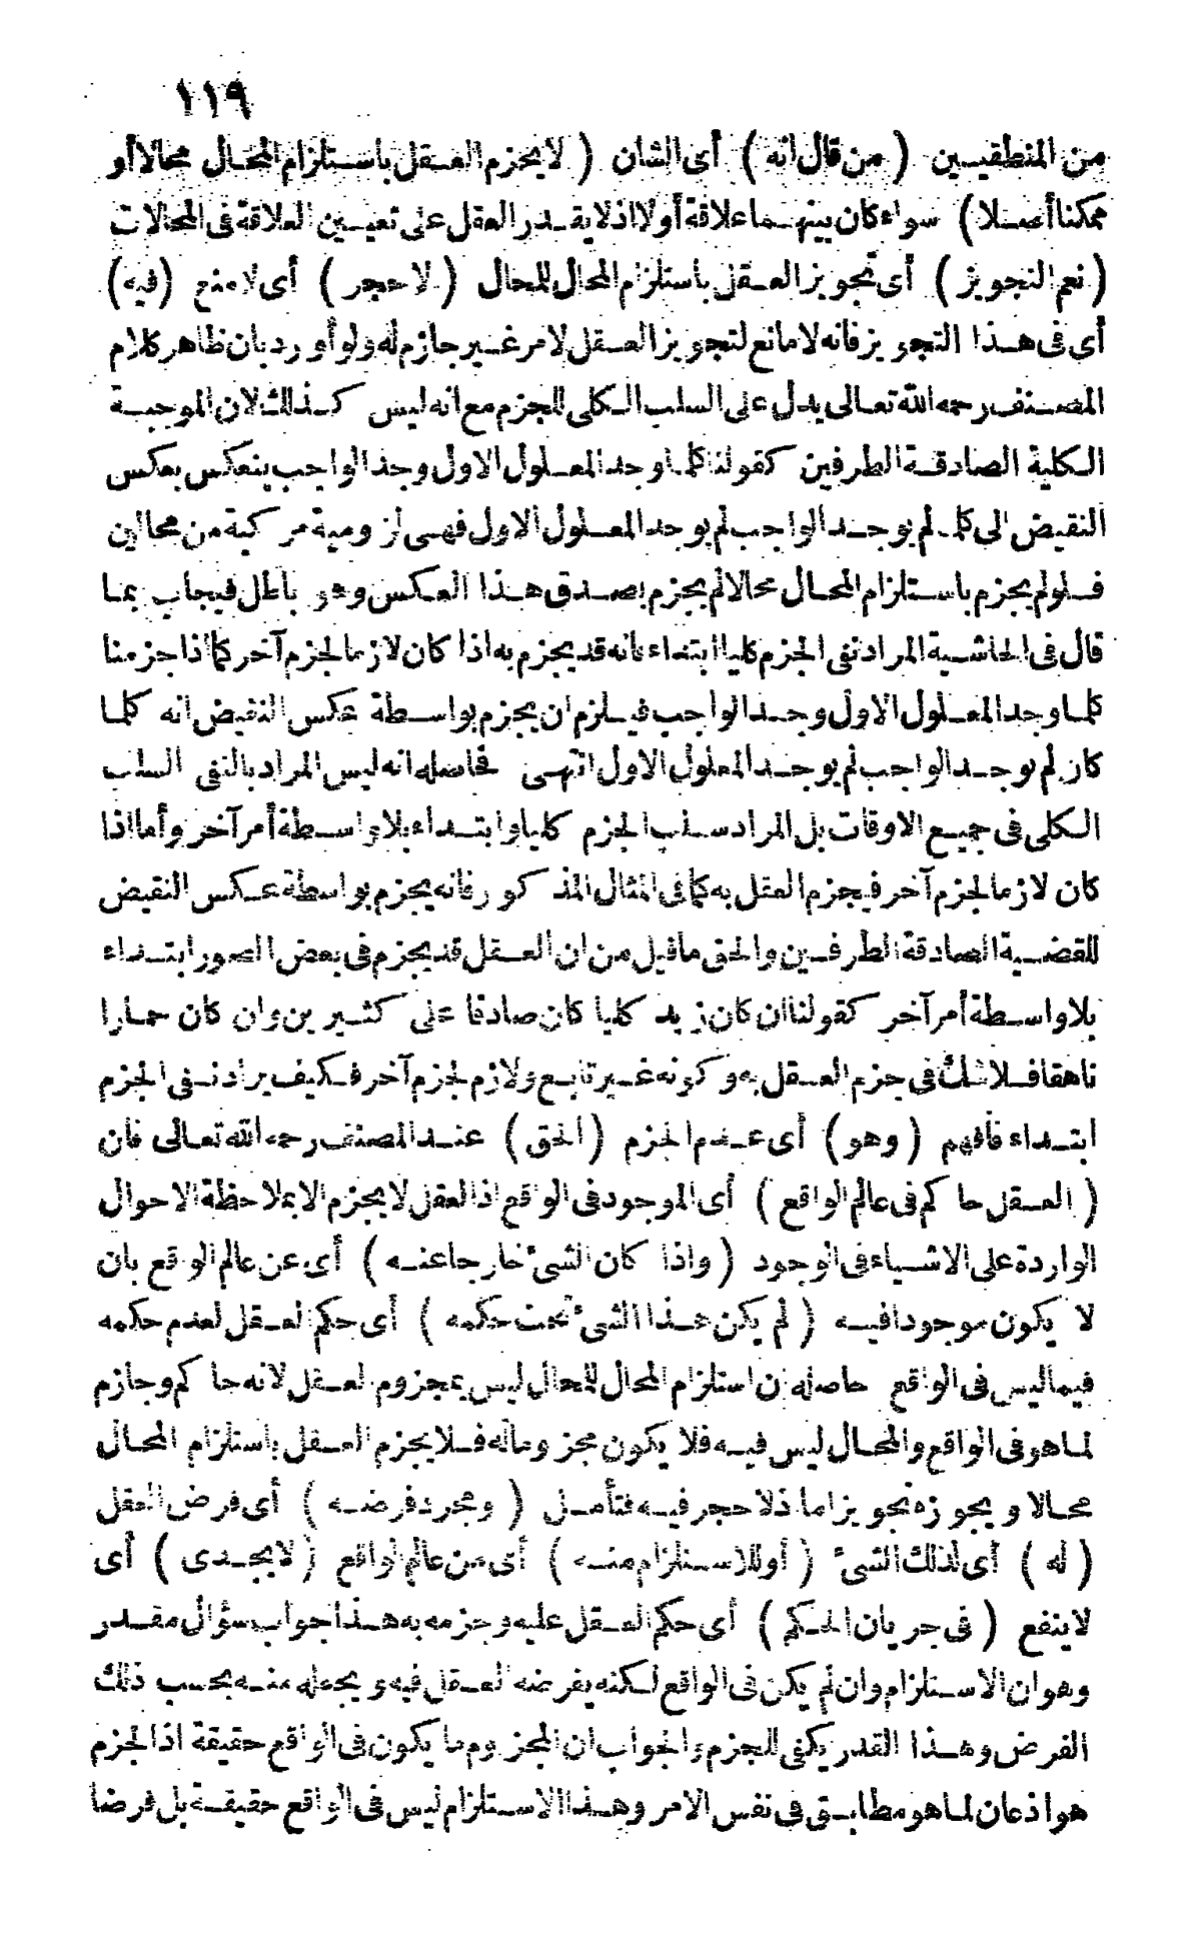 ١١٩
من المنطقيين (من قال انه) أى الشان (لا يجزم العقل باستلزام المحال محالا أو
ممكنا أصلا) سواء كان بينهما علاقة أولا اذ لا يقدر العقل على تعيين العلاقة فى المحالات
(نعم التجويز) أى تجويز العقل باستلزام المحال للمحال (لا حجر) أى لا منع (فيه)
أى فى هذا التجويز فانه لا مانع لتجويز العقل لامر غير جازم له ولو أورد بان ظاهر كلام
المصنف رحمه الله تعالى يدل على السلب الكلى للجزم مع انه ليس كذلك لان الموجبة
الكلية الصادقة الطرفين كقولنا كلما وجد المعلول الاول وجد الواجب ينعكس بعكس
النقيض الى كلما لم يوجد الواجب لم يوجد المعلول الاول فهى لزومية مركبة من محالين
فلو لم يجزم باستلزام المحال محالا لم يجزم بصدق هذا العكس وهو باطل فيجاب بما
قال فى الحاشية المراد نفى الجزم كليا ابتداء فانه قد يجزم به اذا كان لازما لجزم آخر كما اذا جزمنا
كلما وجد المعلول الاول وجد الواجب فيلزم ان يجزم بواسطة عكس النقيض انه كلما
كان لم يوجد الواجب لم يوجد المعلول الاول انتهى فحاصله انه ليس المراد بالنفى السلب
الكلى فى جميع الاوقات بل المراد سلب الجزم كليا وابتداء بلا واسطة أمر آخر وأما اذا
كان لازما لجزم آخر فيجزم العقل به كما فى المثال المذكور فانه يجزم بواسطة عكس النقيض
للقضية الصادقة الطرفين والحق ما قيل من ان العقل قد يجزم فى بعض الصور ابتداء
بلا واسطة أمر آخر كقولنا ان كان زيد كليا كان صادقا على كثيرين وان كان حمارا
ناهقا فلا شك فى جزم العقل به وكونه غير تابع ولازم لجزم آخر فكيف يراد نفى الجزم
ابتداء فافهم (وهو) أى عدم الجزم (الحق) عند المصنف رحمه الله تعالى فان
(العقل حاكم فى عالم الواقع) أى الموجود فى الواقع اذ العقل لا يجزم الا بملاحظة الاحوال
الواردة على الاشياء فى الوجود (واذا كان الشئ خارجا عنه) أى عن عالم الواقع بان
لا يكون موجودا فيه (لم يكن هذا الشئ تحت حكمه) أى حكم العقل لعدم حكمه
فيما ليس فى الواقع حاصله ان استلزام المحال للمحال ليس بمجزوم العقل لانه حاكم وجازم
لما هو فى الواقع والمحال ليس فيه فلا يكون مجزوما له فلا يجزم العقل باستلزام المحال
محالا ويجوزه تجويزا ما ذلا حجر فيه فتأمل (ومجرد فرضه) أى فرض العقل
(له) أى لذلك الشئ (أو للاستلزام منه) أى من عالم الواقع (لا يجدى) أى
لا ينفع (فى جريان الحكم) أى حكم العقل عليه وجزمه به هذا جواب سؤال مقدر
وهو ان الاستلزام وان لم يكن فى الواقع لكنه يفرضه العقل فيه ويجعله منه بحسب ذلك
الفرض وهذا القدر يكفى للجزم والجواب ان المجزوم ما يكون فى الواقع حقيقة اذ الجزم
هو اذعان لما هو مطابق فى نفس الامر وهذا الاستلزام ليس فى الواقع حقيقة بل فرضا